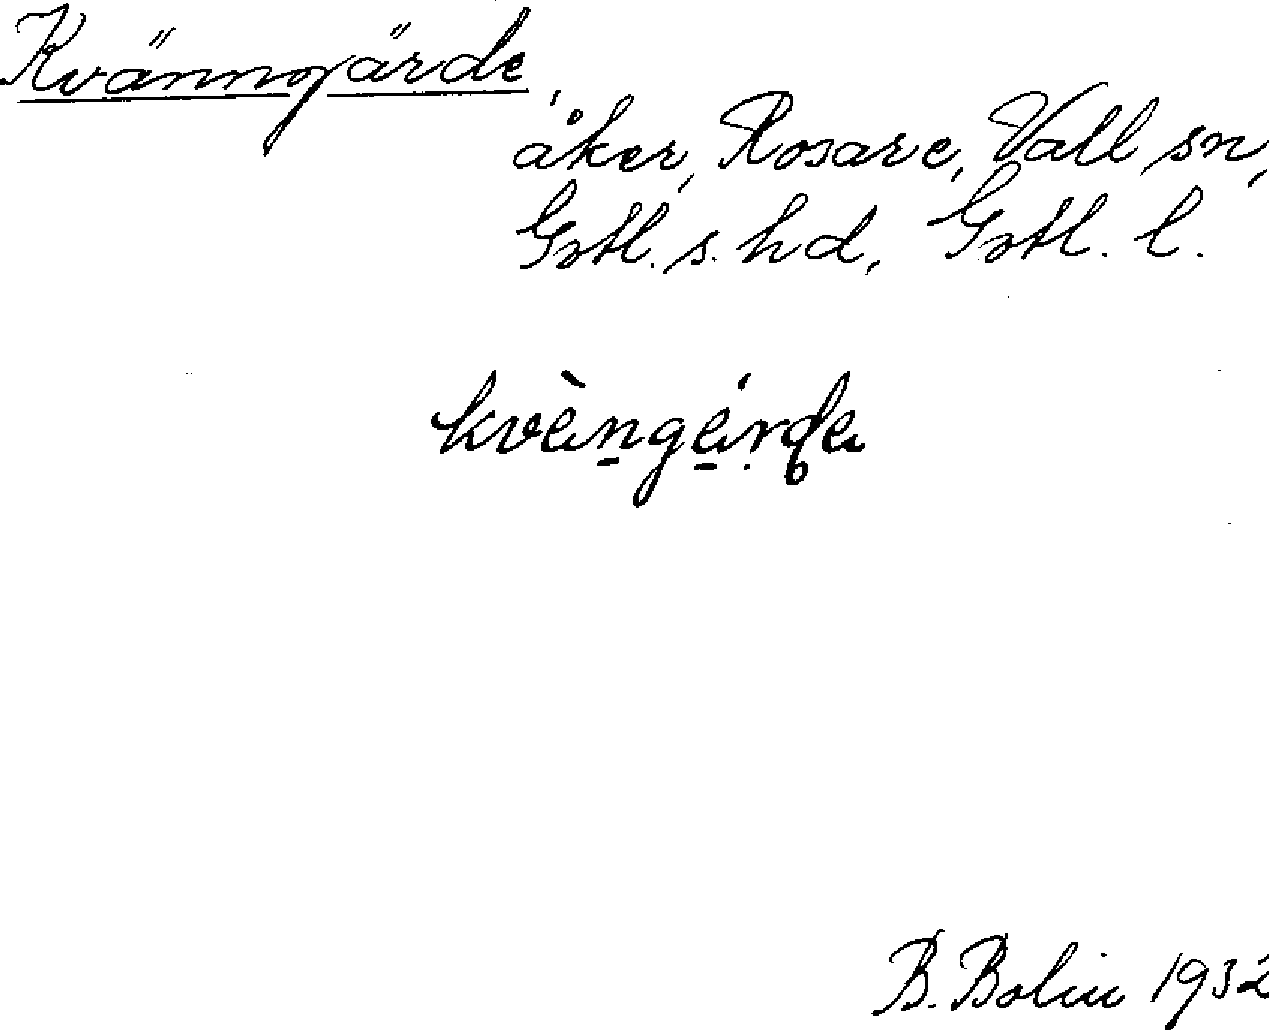 Kvänngärde,
åker, Rosare, Vall sn,
Gotl. s. hd, Gotl. l.
kvèngérde
B. Bolin 1932